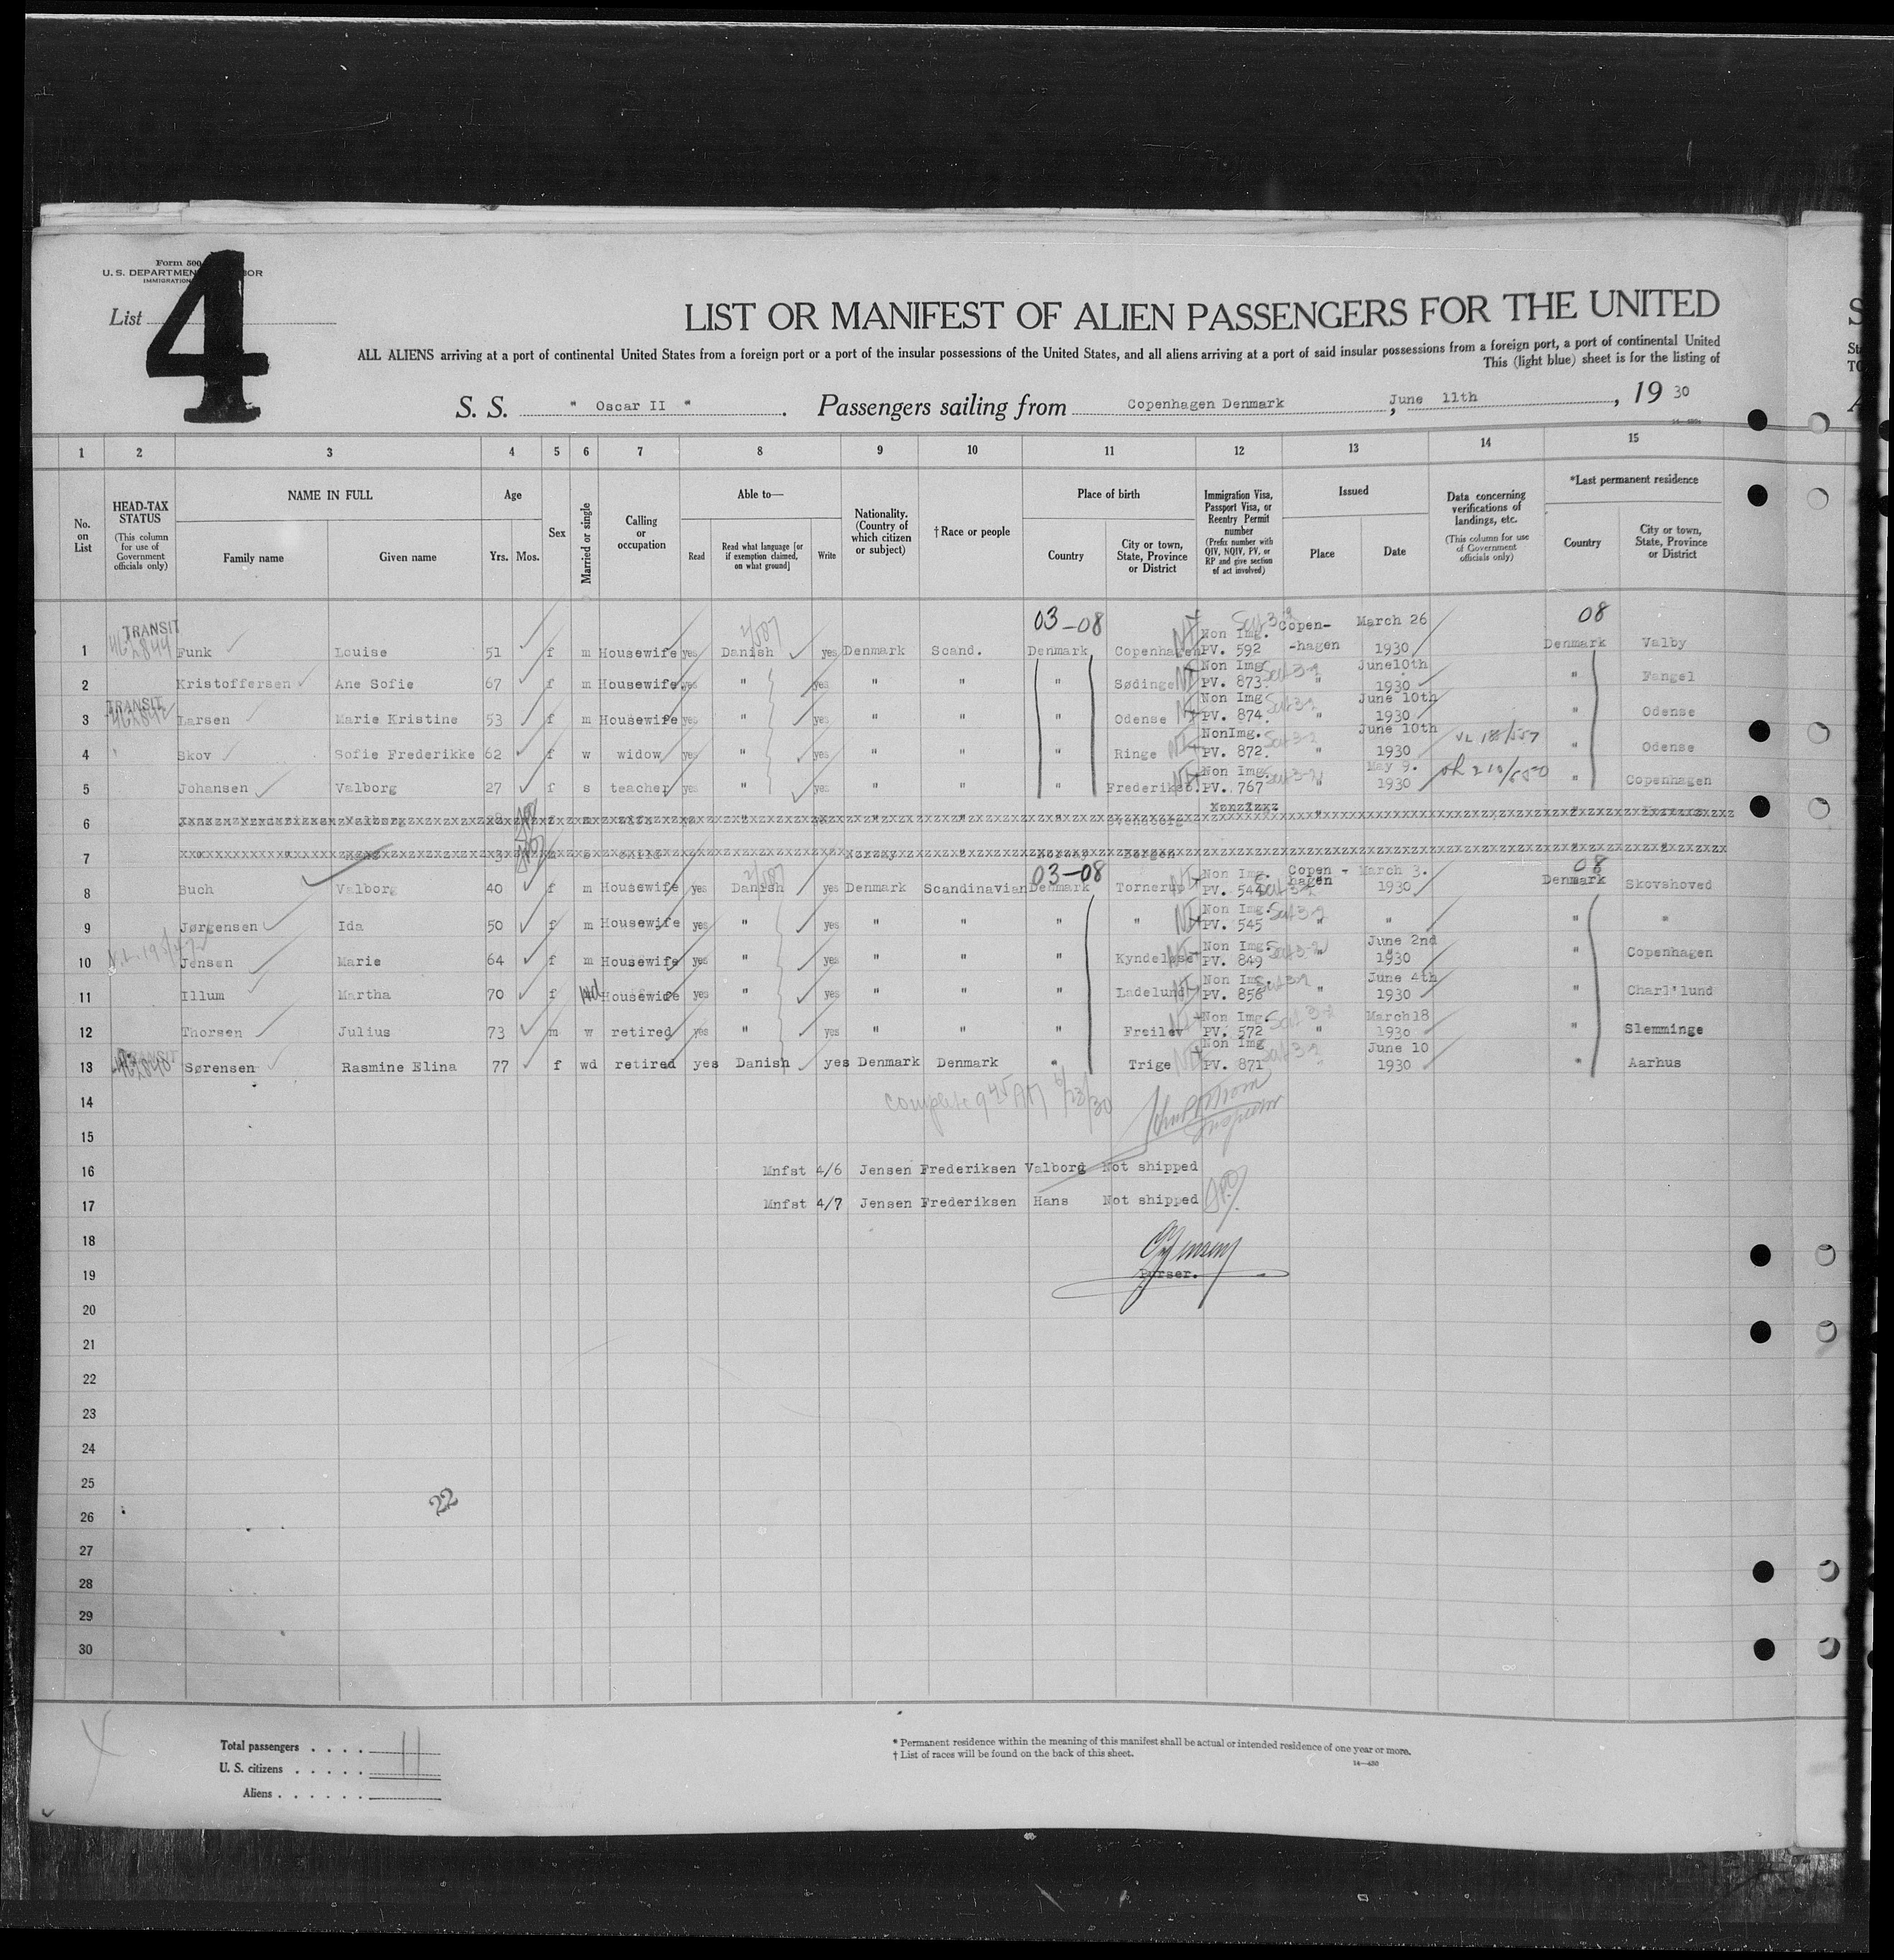 Form 500
U. S. DEPARTMENT
IMMIGRATION
List
4
LIST OR MANIFEST OF ALIEN PASSENGERS FOR THE UNITED
ALL ALIENS arriving at a port of continental United States from a foreign port or a port of the insular possessions of the United States, and all aliens arriving at a port of said insular possessions from a foreign port, a port of continental United
This (light blue) sheet is for the listing of
S. S. " Oscar II " . Passengers sailing from Copenhagen Denmark , June 11th , 19 30
1 2 3 4 5 6 7 8 9 10 11 12 13 14 15
No. on List
HEAD-TAX STATUS (This column for use of Government officials only)
NAME IN FULL
Family name Given name
Age
Yrs. Mos.
Sex
Married or single
Calling or occupation
Able to—
Read Read what language [or if exemption claimed, on what ground] Write
Nationality. (Country of which citizen or subject)
† Race or people
Place of birth
Country City or town, State, Province or District
Immigration Visa, Passport Visa, or Reentry Permit number (Prefix number with QIV, NQIV, PV, or RP and give section of act involved)
Issued
Place Date
Data concerning verifications of landings, etc. (This column for use of Government officials only)
*Last permanent residence
Country City or town, State, Province or District
03-08 08
1 TRANSIT Funk Louise 51 f m Housewife yes Danish yes Denmark Scand. Denmark Copenhagen Non Img. PV. 592 Copen-hagen March 26 1930 Denmark Valby
2 Kristoffersen Ane Sofie 67 f m Housewife yes " yes " " " Sødinge Non Img PV. 873. " June10th 1930 " Fangel
3 TRANSIT Larsen Marie Kristine 53 f m Housewife yes " yes " " " Odense Non Img PV. 874. " June 10th 1930 " Odense
4 Skov Sofie Frederikke 62 f w widow yes " yes " " " Ringe NonImg. PV. 872. " June 10th 1930 " Odense
5 Johansen Valborg 27 f s teacher yes " yes " " " Frederiksb. Non Img. PV. 767 " May 9. 1930 " Copenhagen
6
7
03-08 08
8 Buch Valborg 40 f m Housewife yes Danish yes Denmark Scandinavian Denmark Tornerup Non Img. PV. 544 Copen - hagen March 3. 1930 Denmark Skovshoved
9 Jørgensen Ida 50 f m Housewife yes " yes " " " " Non Img. PV. 545 " " " "
10 Jensen Marie 64 f m Housewife yes " yes " " " Kyndeløse Non Img. PV. 849 " June 2nd 1930 " Copenhagen
11 Illum Martha 70 f wd Housewife yes " yes " " " Ladelund Non Img. PV. 856 " June 4th 1930 " Charl'lund
12 Thorsen Julius 73 m w retired yes " yes " " " Freilev Non Img. PV. 572 " March18 1930 " Slemminge
13 TRANSIT Sørensen Rasmine Elina 77 f wd retired yes Danish yes Denmark Denmark " Trige Non Img PV. 871 " June 10 1930 " Aarhus
14 complete 9 45 AM 6/23/30
15 Inspector
16 Mnfst 4/6 Jensen Frederiksen Valborg Not shipped
17 Mnfst 4/7 Jensen Frederiksen Hans Not shipped
18
19 Purser.
20
21
22
23
24
25
22
26
27
28
29
30
Total passengers . . . . 11
U. S. citizens . . . . .
Aliens . . . . . .
* Permanent residence within the meaning of this manifest shall be actual or intended residence of one year or more.
† List of races will be found on the back of this sheet.
14—430